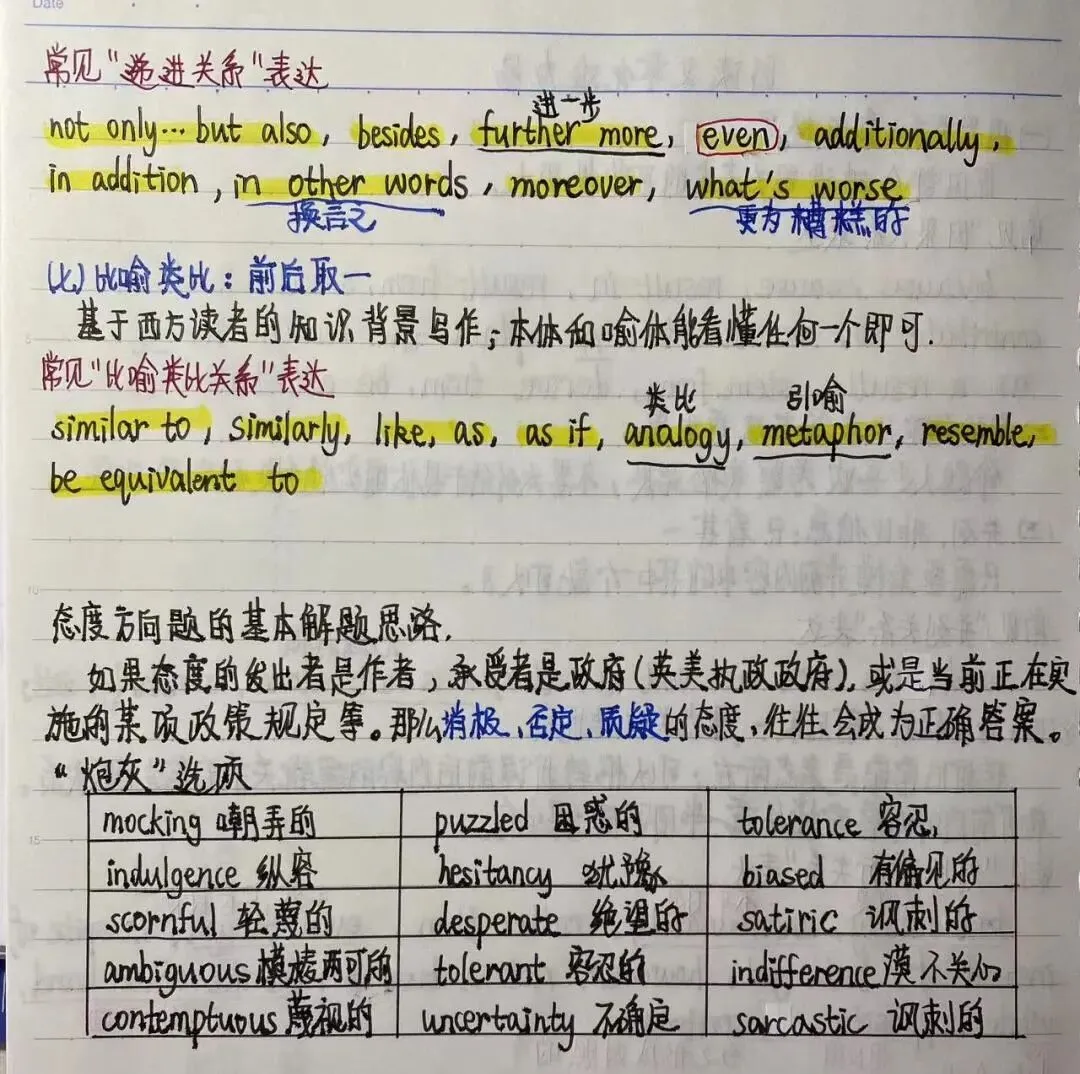 Date
常见"递进关系"表达
进一步
not only… but also, besides, further more, even, additionally,
in addition, in other words, moreover, what's worse
换言之 更为糟糕的
(七)比喻类比:前后取一
基于西方读者的知识背景写作;本体和喻体能看懂任何一个即可.
常见"比喻类比关系"表达
类比 引喻
similar to, similarly, like, as, as if, analogy, metaphor, resemble,
be equivalent to
态度方向题的基本解题思路.
如果态度的发出者是作者,承受者是政府(英美执政政府),或是当前正在实
施的某项政策规定等。那么消极、否定、质疑的态度,往往会成为正确答案。
"炮灰"选项
mocking 嘲弄的 puzzled 困惑的 tolerance 容忍
indulgence 纵容 hesitancy 犹豫 biased 有偏见的
scornful 轻蔑的 desperate 绝望的 satiric 讽刺的
ambiguous 模棱两可的 tolerant 容忍的 indifference 漠不关心
contemptuous 蔑视的 uncertainty 不确定 sarcastic 讽刺的